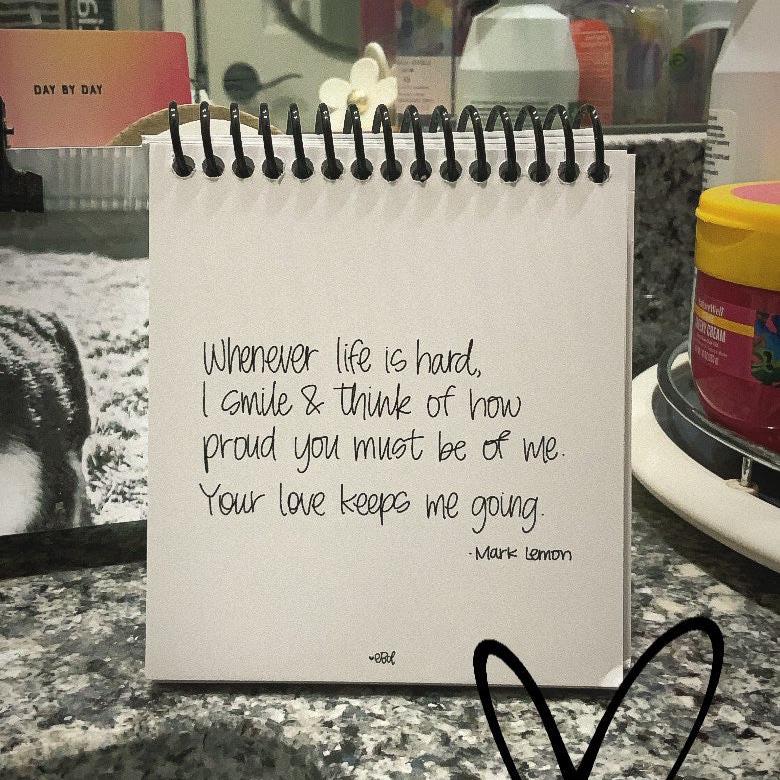 DAY BY DAY
Whenever life is hard,
I smile & think of how
proud you must be of me.
Your love keeps me going.
-Mark Lemon